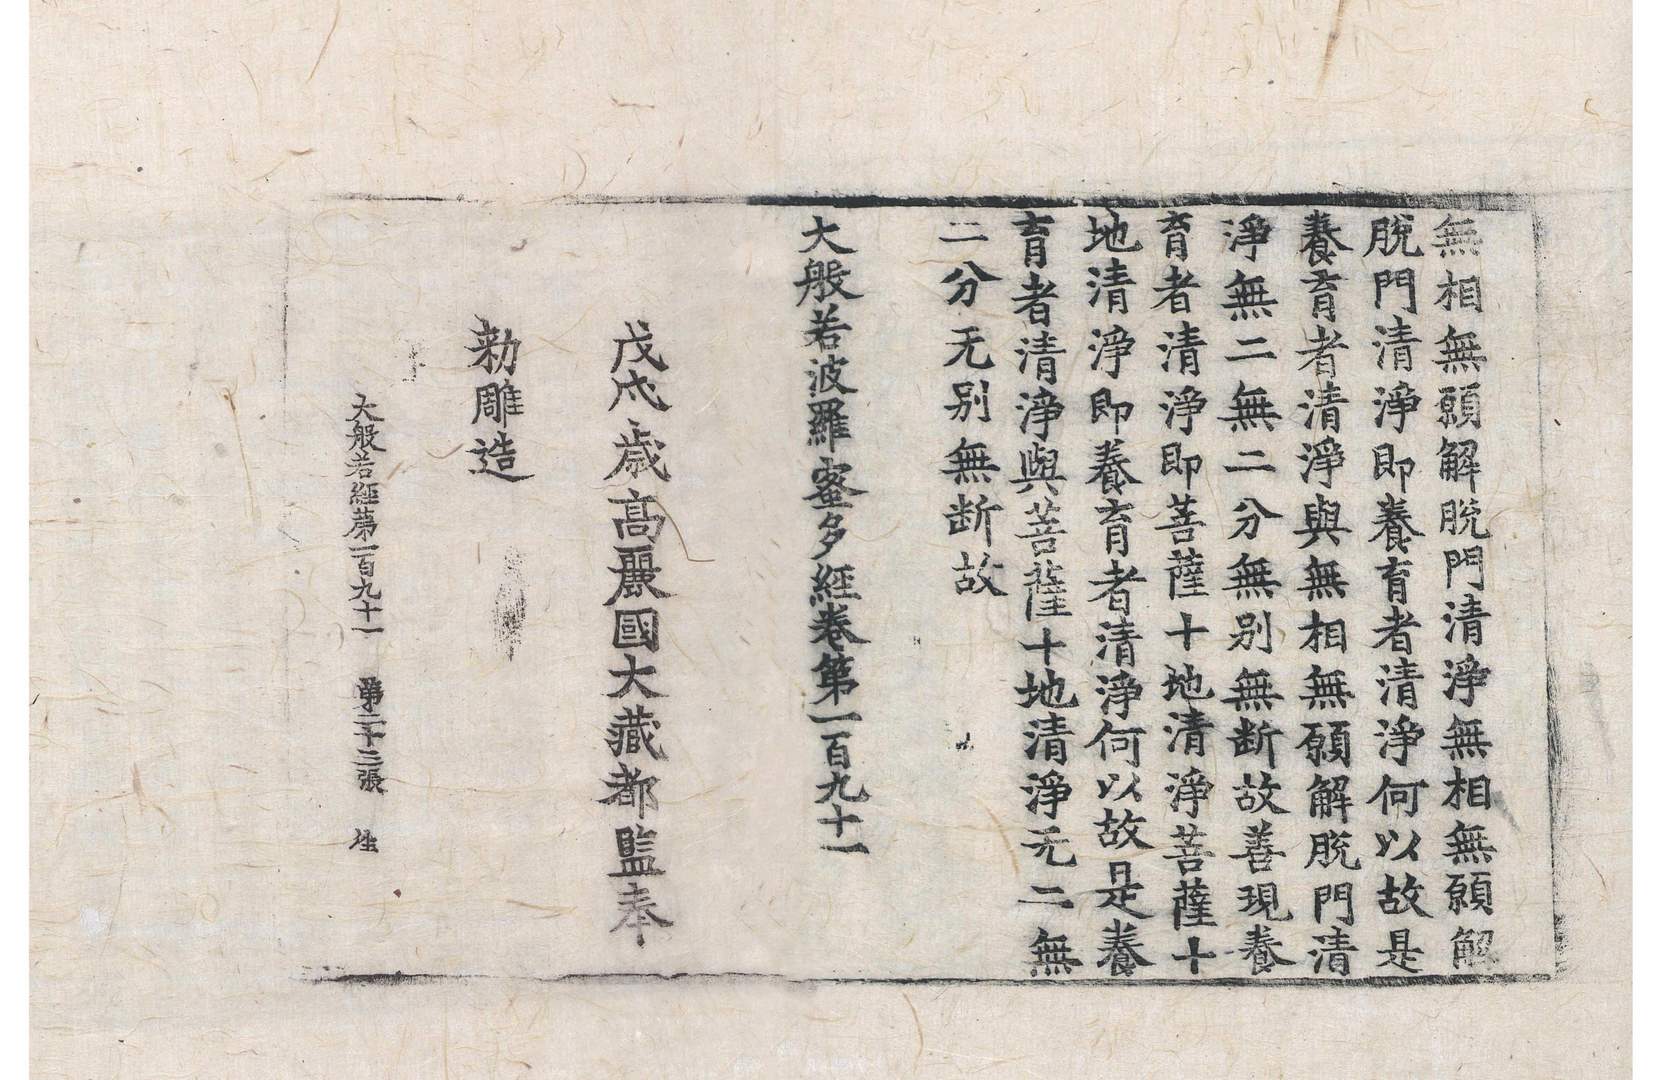 無相無願解脫門清淨無相無願解
脫門清淨即養育者清淨何以故是
養育者清淨與無相無願解脫門清
淨無二無二分無別無断故善現養
育者清淨即菩薩十地清淨菩薩十
地清淨即養育者清淨何以故是養
育者清淨與菩薩十地清淨无二無
二分无別無断故
大般若波羅蜜多經卷第一百九十一
戊戌歳高麗國大藏都監奉
勑雕造
大般若經第一百九十一 第二十三張 姓